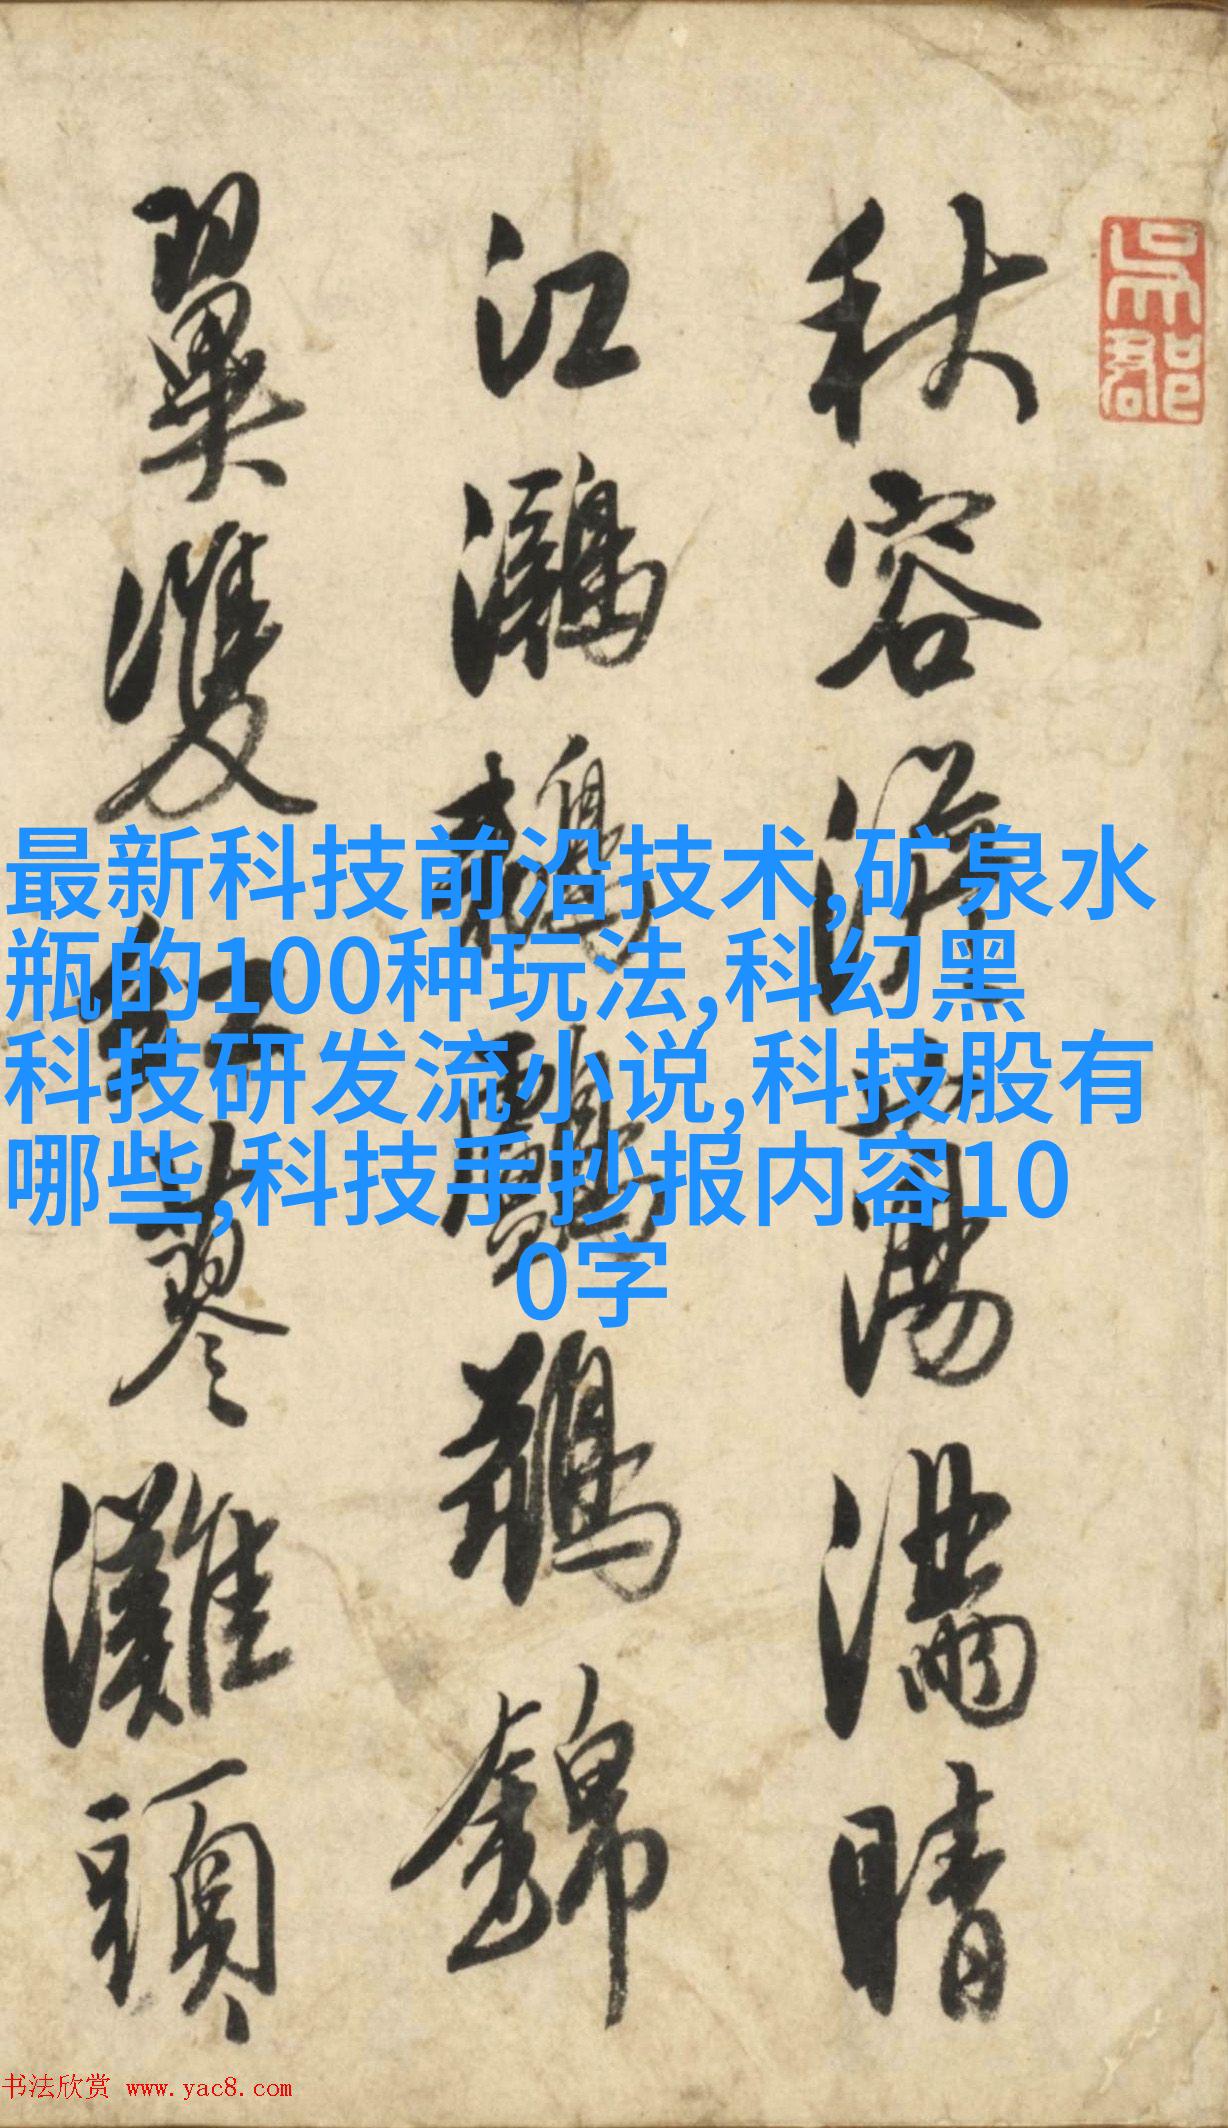 吳郡
秋容蕩滿晴
江鸂鶒錦
翼雙紅蓼灘頭
最新科技前沿技术,矿泉水
瓶的100种玩法,科幻黑
科技研发流小说,科技股有
哪些,科技手抄报内容10
0字
书法欣赏 www.yac8.com